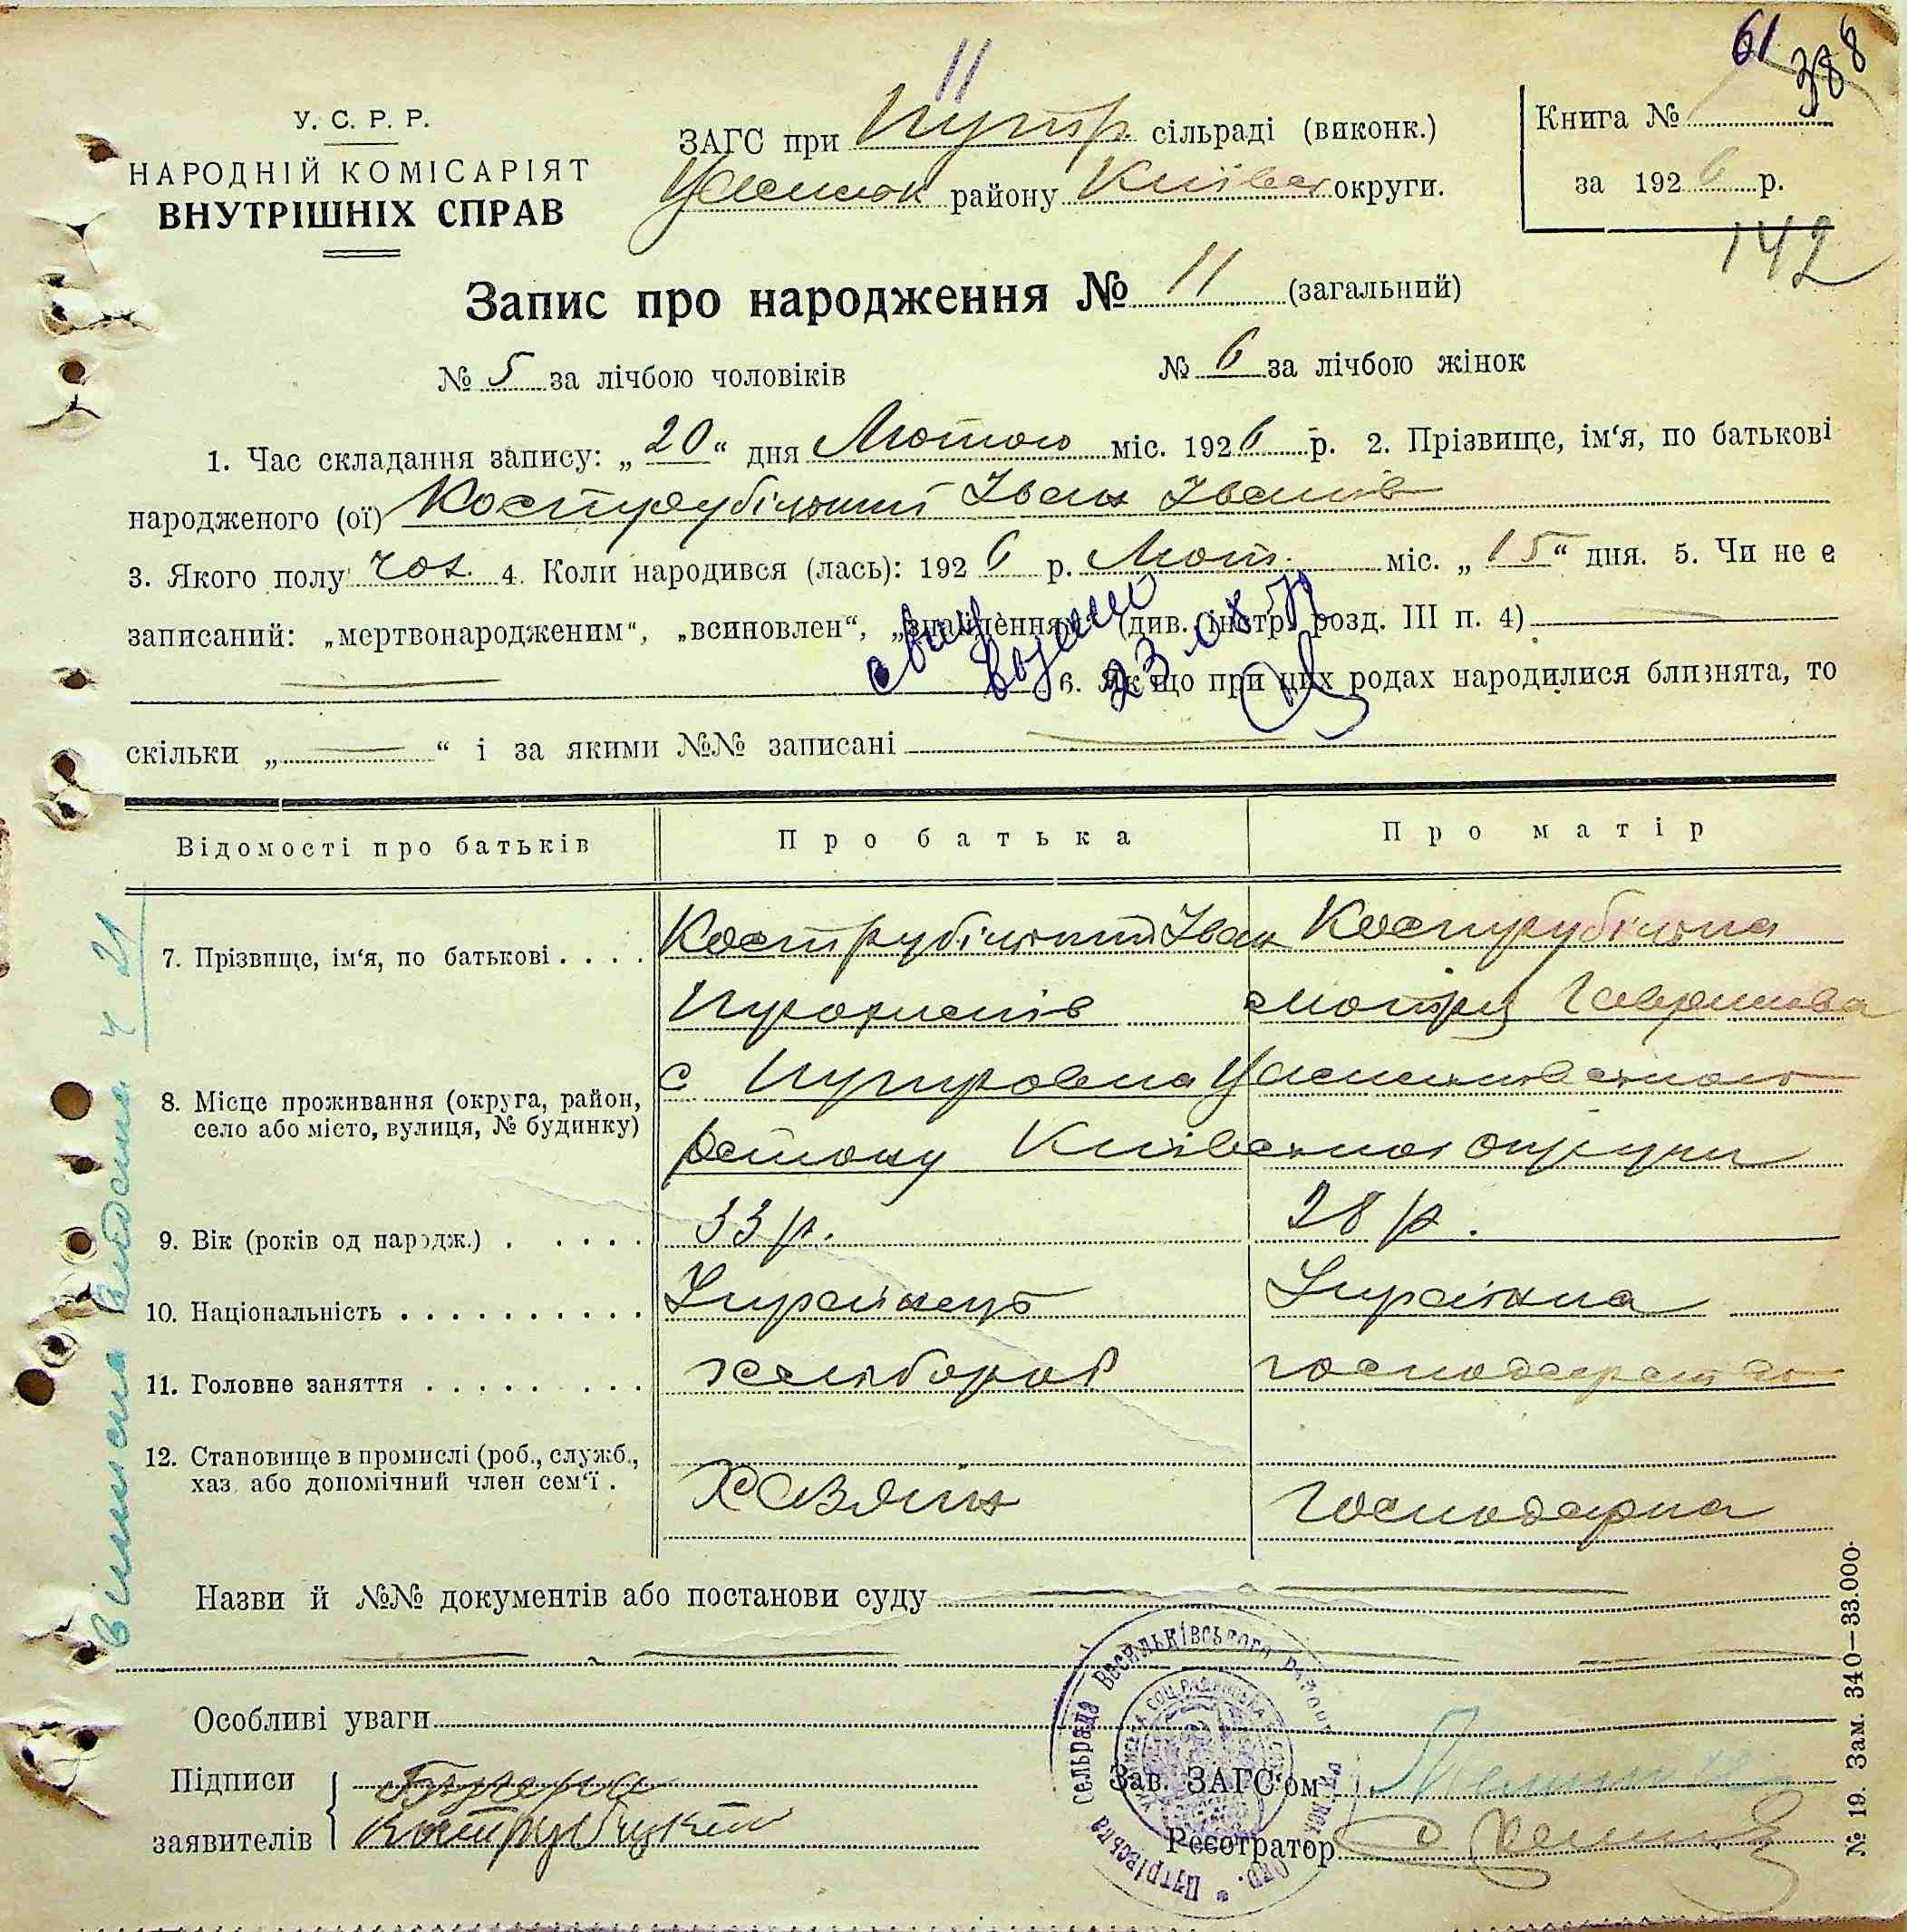 61 388
У. С. Р. Р.
НАРОДНІЙ КОМІСАРІЯТ
ВНУТРІШНІХ СПРАВ
11
ЗАГС при Путр. сільраді (виконк.)
району Київськ округи.
Книга №
за 1926 р.
142
Запис про народження № 11 (загальний)
№ 5 за лічбою чоловіків № 6 за лічбою жінок
1. Час складання запису: „20“ дня Лютого міс. 1926 р. 2. Прізвище, ім‘я, по батькові
народженого (ої) Кострубіцький Іван Іванів
3. Якого полу чол. 4. Коли народився (лась): 1926 р. Лют. міс. „15“ дня. 5. Чи не є
записаний: „мертвонародженим“, „всиновлен“, „знайденням“ (див. інстр. розд. III п. 4)
6. Як що при цих родах народилися близнята, то
скільки „ “ і за якими №№ записані
Відомості про батьків Про батька Про матір
7. Прізвище, ім‘я, по батькові . . . . Кострубіцький Іван Кострубіцька
Прокопів Мотря Гаврилова
8. Місце проживання (округа, район, с Путровка Васильківського
село або місто, вулиця, № будинку) району Київської округи
9. Вік (років од народж.) . . . . . 33 р. 28 р.
10. Національність . . . . . . . . . . Українець Українка
11. Головне заняття . . . . . . . . . хлібороб господарство
12. Становище в промислі (роб., служб.,
хаз. або допомічний член сем‘ї . Хазяїн Господарка
Назви й №№ документів або постанови суду
Особливі уваги
Підписи
заявителів Кострубицкий
Зав. ЗАГС‘ом
Реєстратор
Путрівська сельрада Васильківського району
№ 19. Зам. 340—33.000.